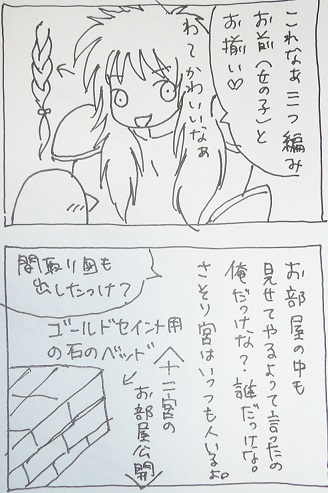 これなぁ三つ編み
お前(女の子)と
お揃い♡
わぁかわいいなぁ
お部屋の中も
見せてやるよって言ったの
俺だっけな?誰だっけな。
さそり宮はいっつも人いるよ。
間取り図も
出したっけ?
ゴールドセイント用
の石のベッド
十二宮の
お部屋公開